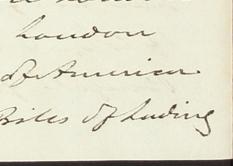 London
of America
Bills of Lading